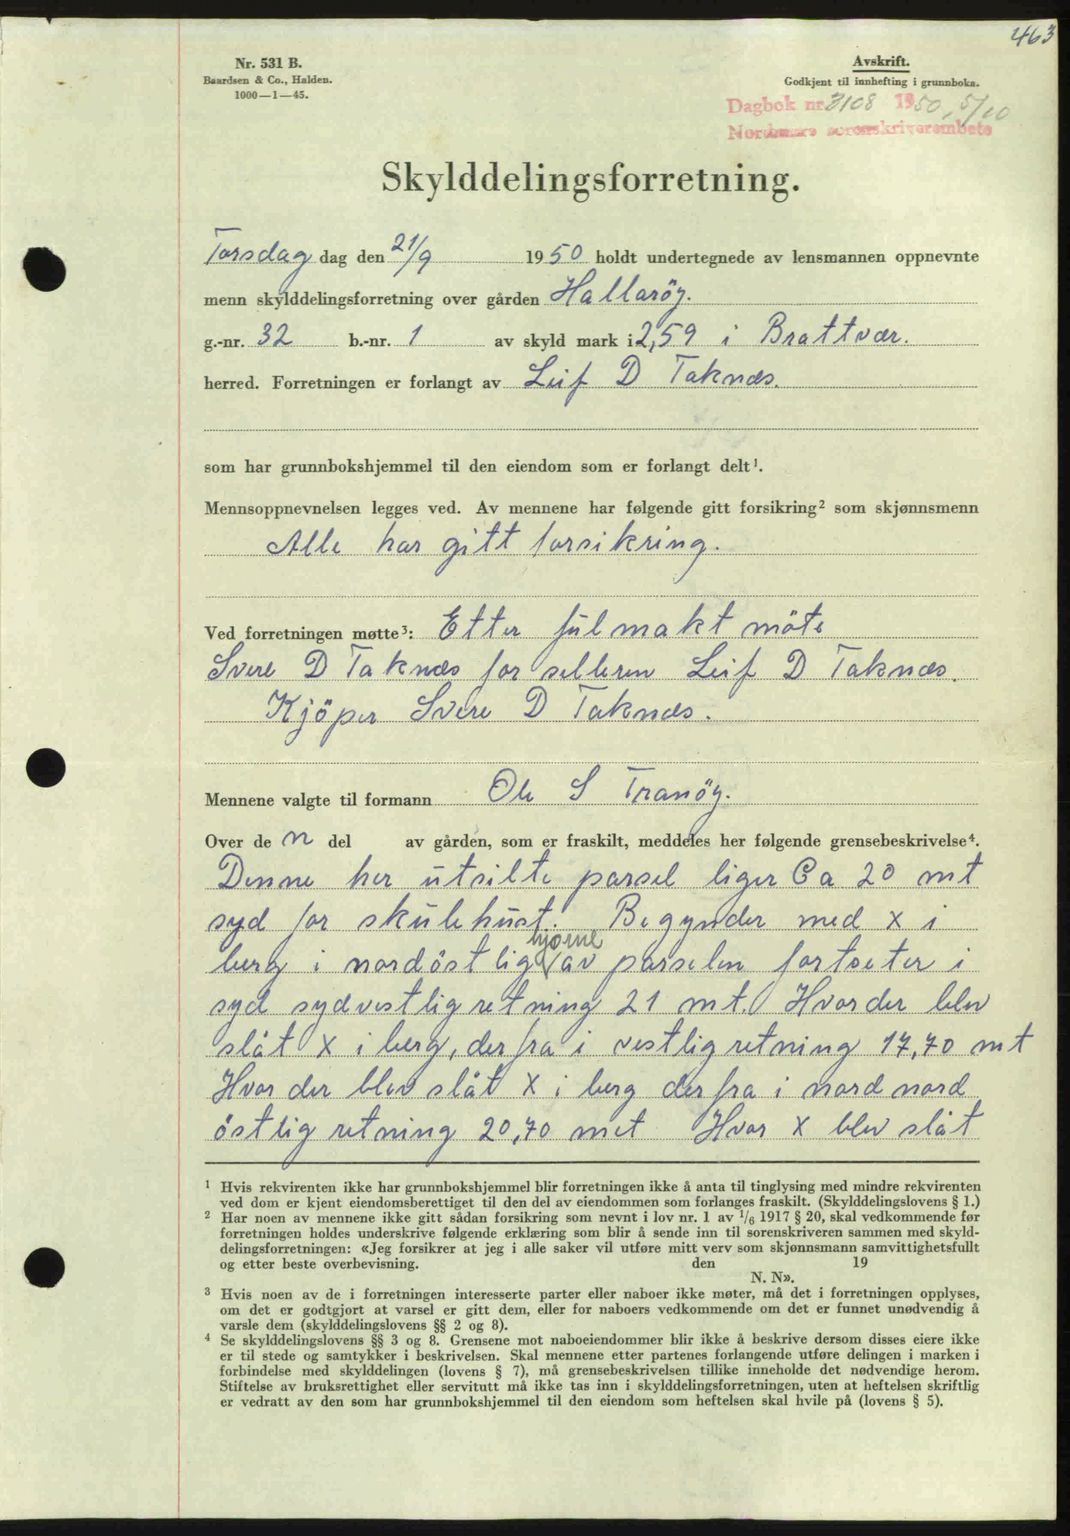 463
Nr. 531 B.
Baardsen & Co., Halden.
1000—1—45.
Avskrift.
Godkjent til innhefting i grunnboka.
Dagbok nr. 3108 1950, 5/10
Nordmøre sorenskriverembete
Skylddelingsforretning.
Torsdag dag den 21/9 1950 holdt undertegnede av lensmannen oppnevnte
menn skylddelingsforretning over gården Hallaröy.
g.-nr. 32 b.-nr. 1 av skyld mark i 2,59 i Brattvær.
herred. Forretningen er forlangt av Leif D Taknæs.
som har grunnbokshjemmel til den eiendom som er forlangt delt¹.
Mennsoppnevnelsen legges ved. Av mennene har følgende gitt forsikring² som skjønnsmenn
Alle har gitt forsikring.
Ved forretningen møtte³: Etter fulmakt möte
Svere D Taknæs for selleren Leif D Taknæs.
Kjöper Svere D Taknæs.
Mennene valgte til formann Ole S Tranöy.
Over de n del av gården, som er fraskilt, meddeles her følgende grensebeskrivelse⁴.
Denne her utsilte parsel liger Ca 20 mt
syd for skulehust. Begynder med x i
hjørne
berg i nordöstlig av parselen fortseter i
syd sydvestlig retning 21 mt. Hvor der blev
slåt x i berg, der fra i vestlig retning 17,70 mt
Hvor der blev slåt x i berg der fra i nord nord
östlig retning 20,70 met Hvor x blev slåt
¹ Hvis rekvirenten ikke har grunnbokshjemmel blir forretningen ikke å anta til tinglysing med mindre rekvirenten
ved dom er kjent eiendomsberettiget til den del av eiendommen som forlanges fraskilt. (Skylddelingslovens § 1.)
² Har noen av mennene ikke gitt sådan forsikring som nevnt i lov nr. 1 av 1/6 1917 § 20, skal vedkommende før
forretningen holdes underskrive følgende erklæring som blir å sende inn til sorenskriveren sammen med skyld-
delingsforretningen: «Jeg forsikrer at jeg i alle saker vil utføre mitt verv som skjønnsmann samvittighetsfullt
og etter beste overbevisning. den 19
N. N».
³ Hvis noen av de i forretningen interesserte parter eller naboer ikke møter, må det i forretningen opplyses,
om det er godtgjort at varsel er gitt dem, eller for naboers vedkommende om det er funnet unødvendig å
varsle dem (skylddelingslovens §§ 2 og 8).
⁴ Se skylddelingslovens §§ 3 og 8. Grensene mot naboeiendommer blir ikke å beskrive dersom disses eiere ikke
er til stede og samtykker i beskrivelsen. Skal mennene etter partenes forlangende utføre delingen i marken i
forbindelse med skylddelingen (lovens § 7), må grensebeskrivelsen tillike inneholde det nødvendige herom.
Stiftelse av bruksrettighet eller servitutt må ikke tas inn i skylddelingsforretningen, uten at heftelsen skriftlig
er vedratt av den som har grunnbokshjemmel til den eiendom som heftelsen skal hvile på (lovens § 5).